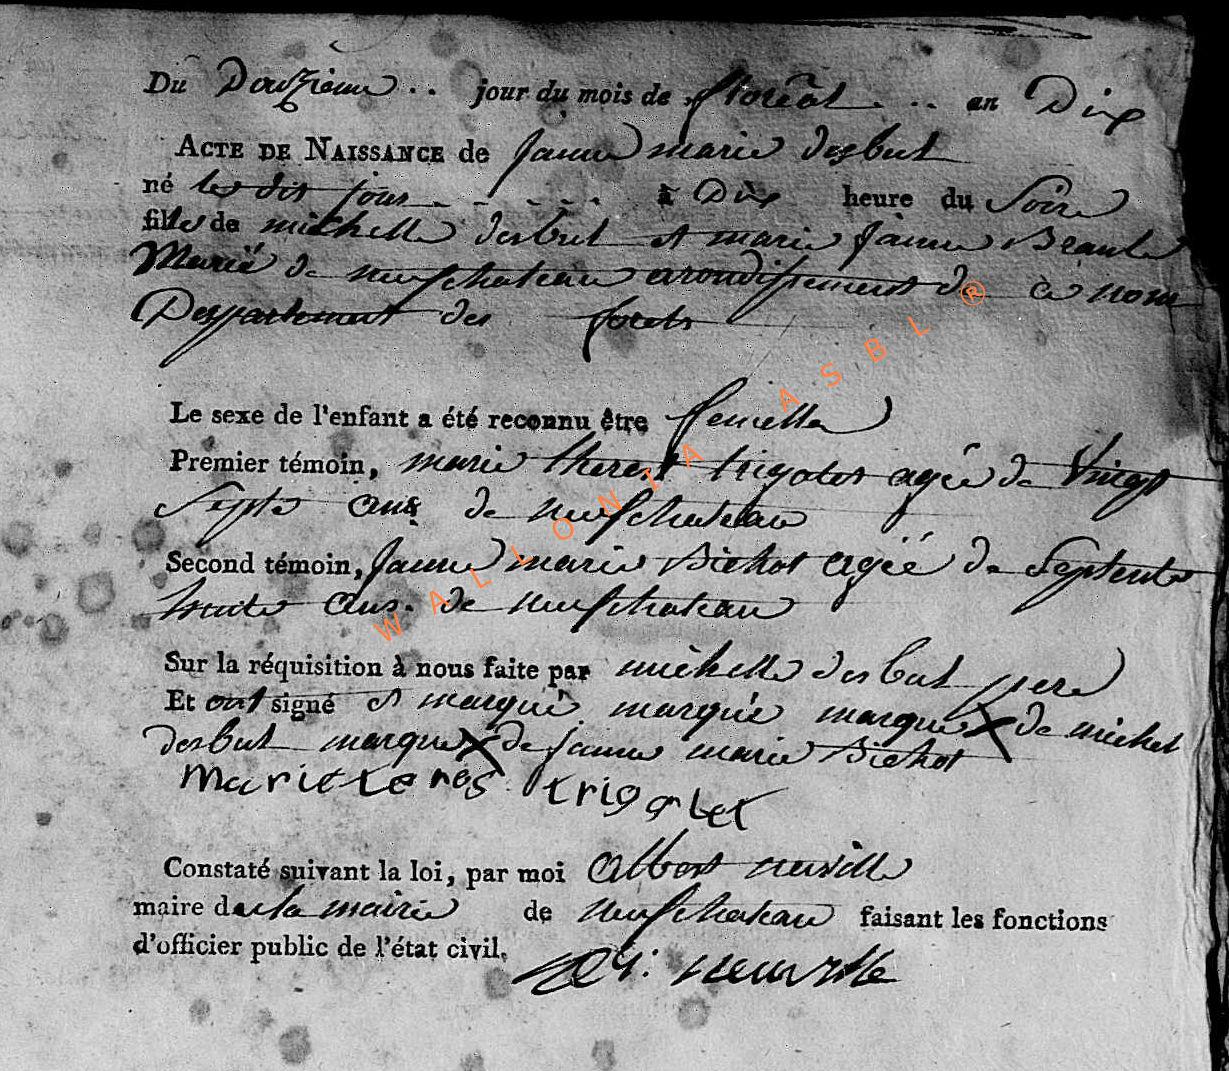 Du Douzieme .. jour du mois de floréal .. .. an Dix
ACTE DE NAISSANCE de Janne marie desbut
né les dit jour - - - - - à Dix heure du Soire
fille de michelle desbut et marie janne
Marié de neufchateau arondissement de ce nom
Departement des forets
Le sexe de l'enfant a été reconnu être femelle
Premier témoin, marie therese trigolet agée de Vingt
Septe ans de neufchateau
Second témoin, Janne marie Bichot agéé de Septente
huite ans. de neufchateau
Sur la réquisition à nous faite par michelle desbut pere
Et ont signé et marqué marquée marque X de michel
desbut marque X de janne marie Bichot
marie teres trigolet
Constaté suivant la loi, par moi Albert neuville
maire de la mairie de neufchateau faisant les fonctions
d'officier public de l'état civil.
neuville
WALLONIA ASBL ®